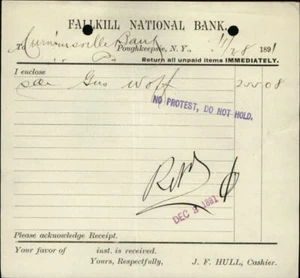 FALLKILL NATIONAL BANK.
To Curwensville Bank
Poughkeepsie, N. Y., 11/28 1891
Pa
Return all unpaid items IMMEDIATELY.
I enclose
Gus Woff 200 08
NO PROTEST, DO NOT HOLD.
DEC 3 1891
Please acknowledge Receipt.
Your favor of inst. is received.
Yours, Respectfully, J. F. HULL, Cashier.